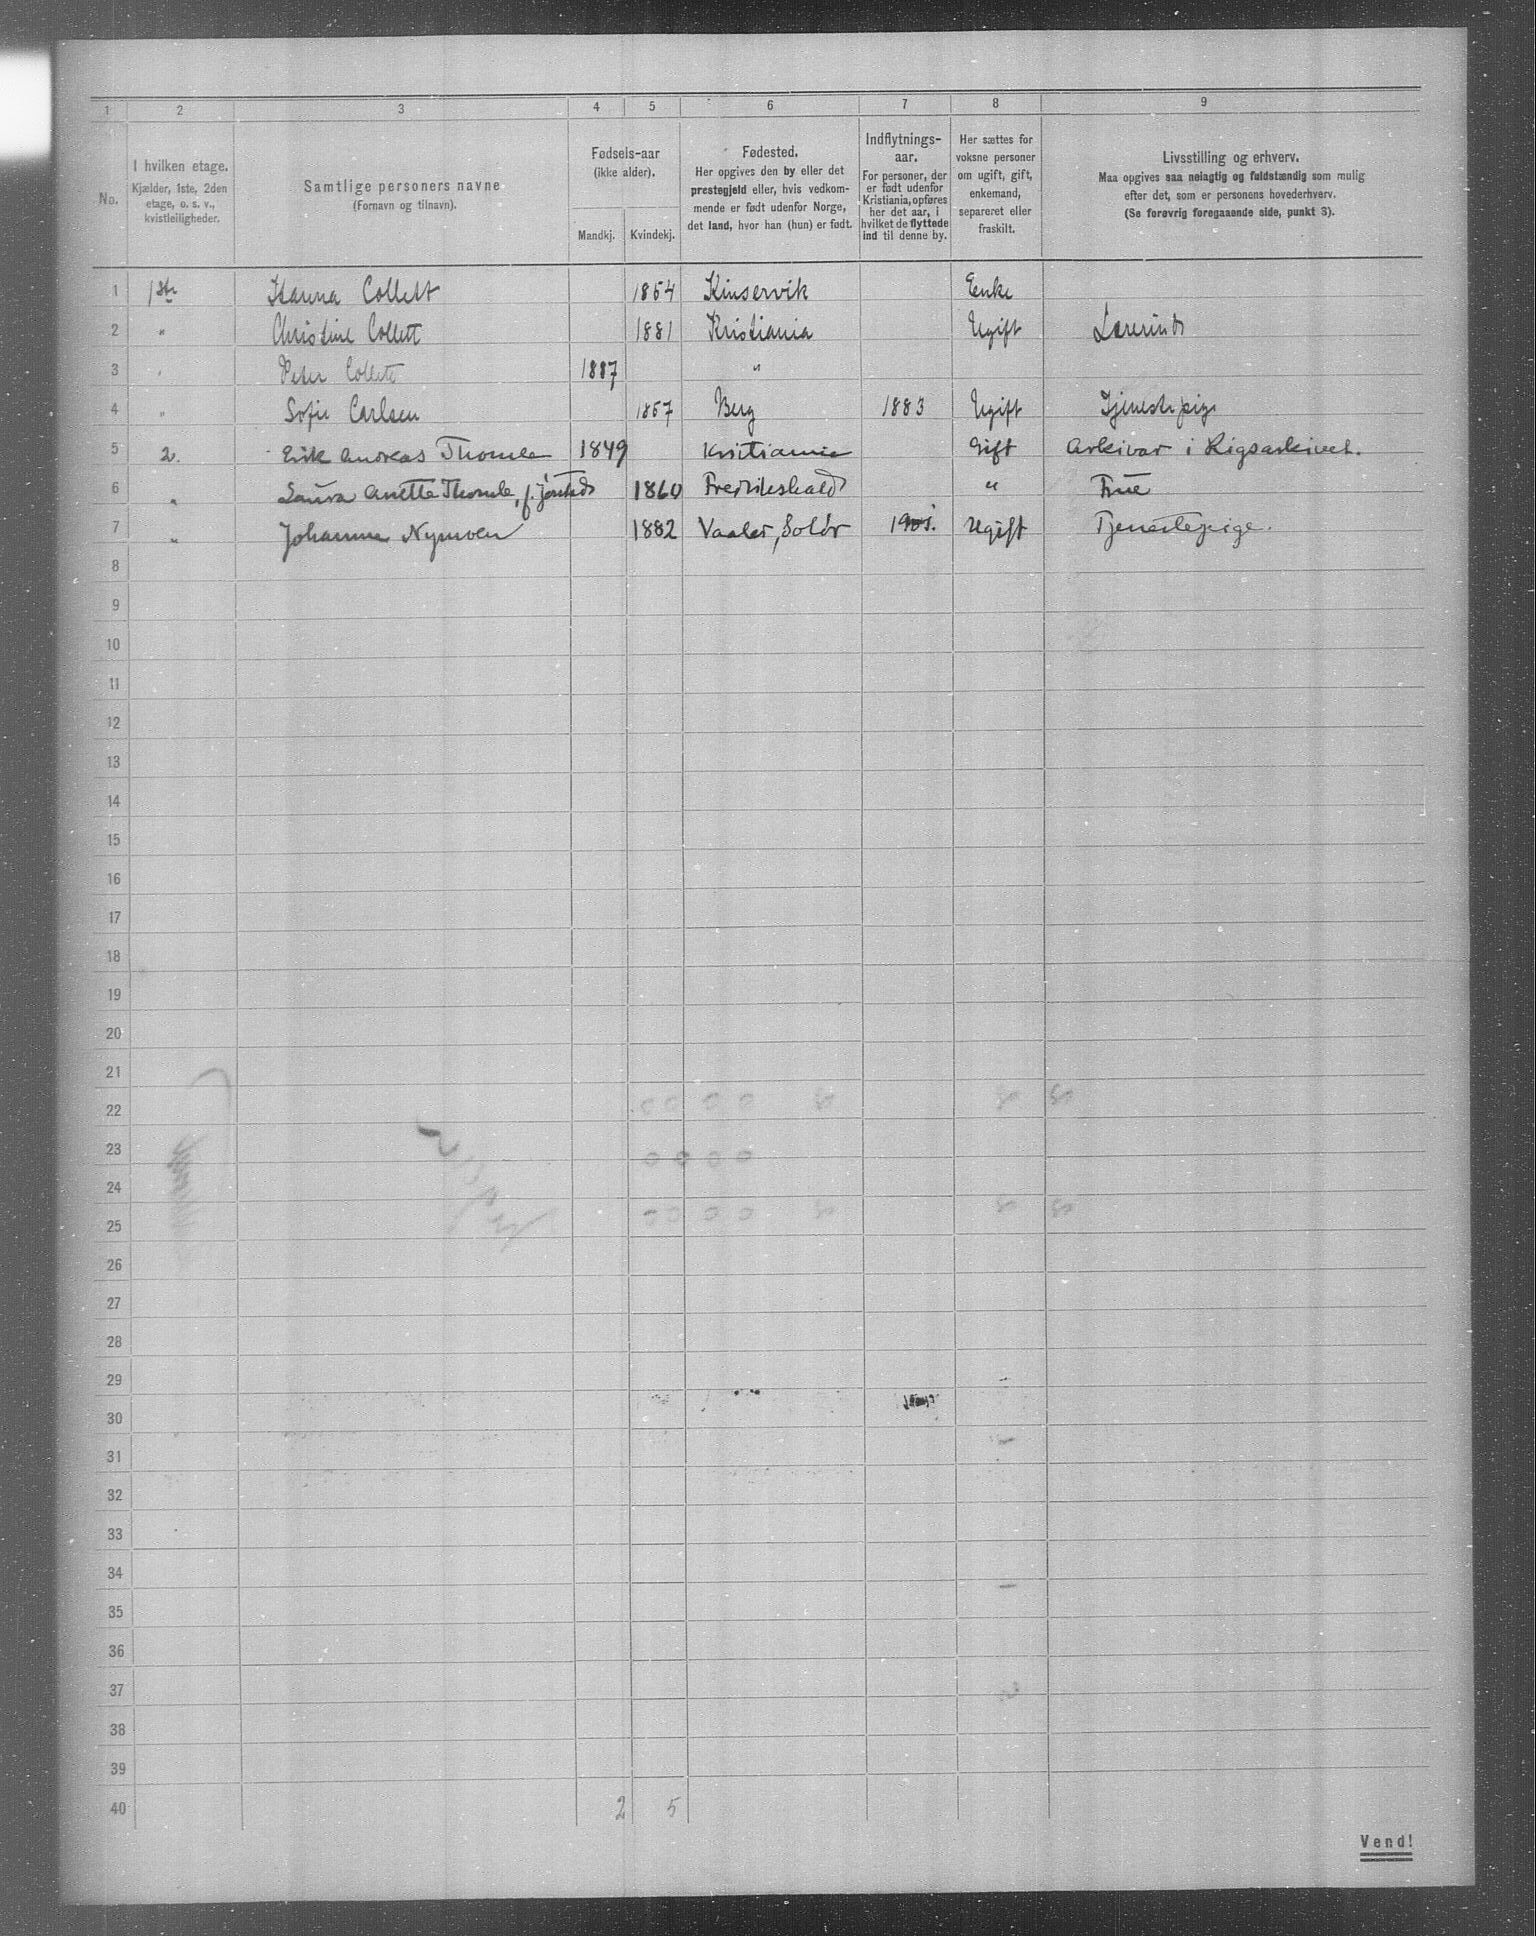 1 2 3 4 5 6 7 8 9
No.
I hvilken etage.
Kjælder, 1ste, 2den
etage, o. s. v.,
kvistleiligheder.
Samtlige personers navne
(Fornavn og tilnavn).
Fødsels-aar
(ikke alder).
Mandkj. Kvindekj.
Fødested.
Her opgives den by eller det
prestegjeld eller, hvis vedkom-
mende er født udenfor Norge,
det land, hvor han (hun) er født.
Indflytnings-
aar.
For personer, der
er født udenfor
Kristiania, opføres
her det aar, i
hvilket de flyttede
ind til denne by.
Her sættes for
voksne personer
om ugift, gift,
enkemand,
separeret eller
fraskilt.
Livsstilling og erhverv.
Maa opgives saa nøiagtig og fuldstændig som mulig
efter det, som er personens hovederhverv.
(Se forøvrig foregaaende side, punkt 3).
1 1ste Hanna Collett 1854 Kinservik Enke
2 " Christine Collett 1881 Kristiania Ugift Lærerinde
3 " Peter Collett 1887 "
4 " Sofie Carlsen 1857 Berg 1883 Ugift Tjenestepige
5 2. Erik Andreas Thomle 1849 Kristiania Gift Arkivar i Rigsarkivet.
6 " Laura Anette Thomle, f. 1860 Fredrikshald " Frue
7 " Johanne Nymoen 1882 Vaaler, Solør Ugift Tjenestepige.
8
9
10
11
12
13
14
15
16
17
18
19
20
21
22
23
24
25
26
27
28
29
30
31
32
33
34
35
36
37
38
39
40 2 5
Vend!